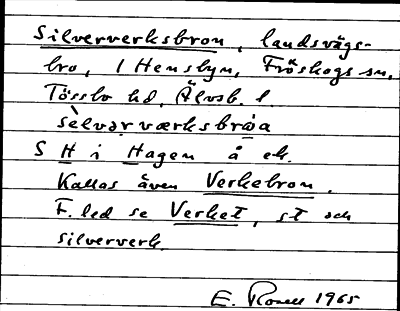 Silververksbron, landsvägs-
bro, i Henslyn, Fröskogs sn,
Tössbo hd, Älvsb. l
sèlvərværksbrøa
S H i Hagen å ek.
Kallas även Verkebron.
F. led se Verket, st och
silververk.
E. Rosell 1965